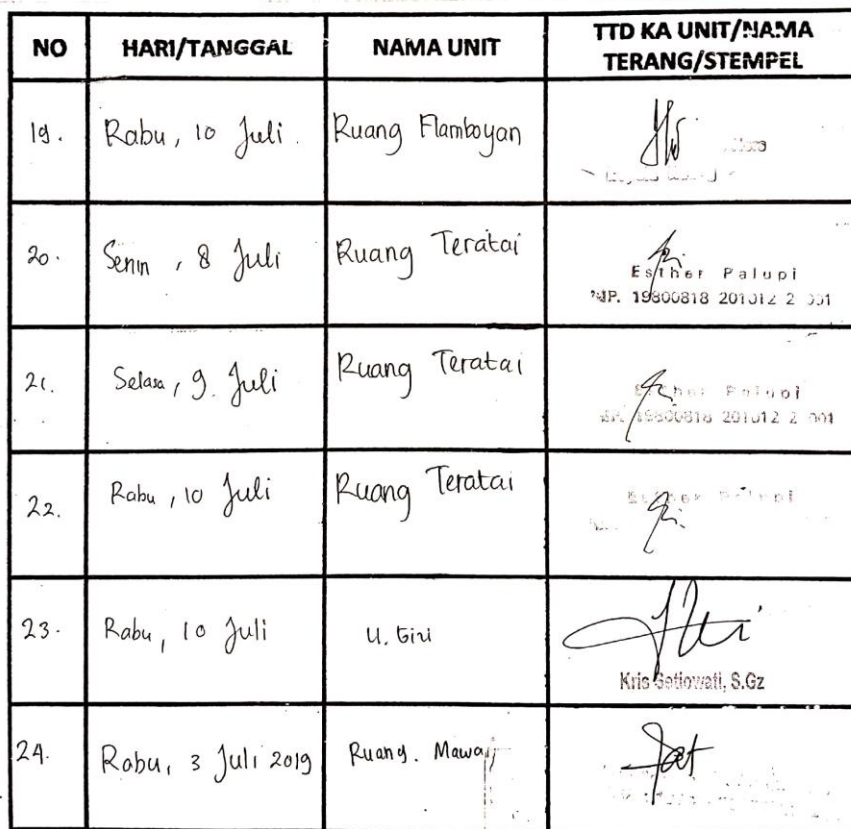 NO HARI/TANGGAL NAMA UNIT TTD KA UNIT/NAMA
TERANG/STEMPEL
19. Rabu, 10 Juli. Ruang Flamboyan
20. Senin, 8 Juli Ruang Teratai
Esther Palupi
NIP. 19800818 201012 2 001
21. Selasa, 9. Juli Ruang Teratai
Esther Palupi
NIP. 19800818 201012 2 001
22. Rabu, 10 Juli Ruang Teratai
Esther Palupi
23. Rabu, 10 Juli U. Gizi
Kris Setiowati, S.Gz
24. Rabu, 3 Juli 2019 Ruang. Mawar